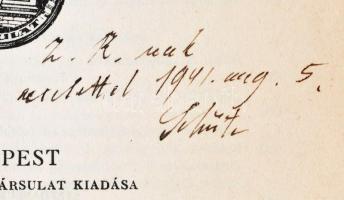 Z. R. nak
szeretettel 1941. aug. 5.
Schütz
PEST
ÁRSULAT KIADÁSA